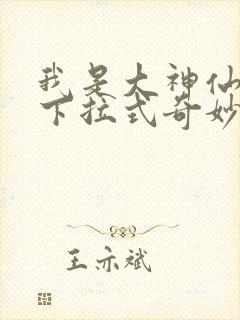 我是大神仙
下拉式奇妙
王亦斌